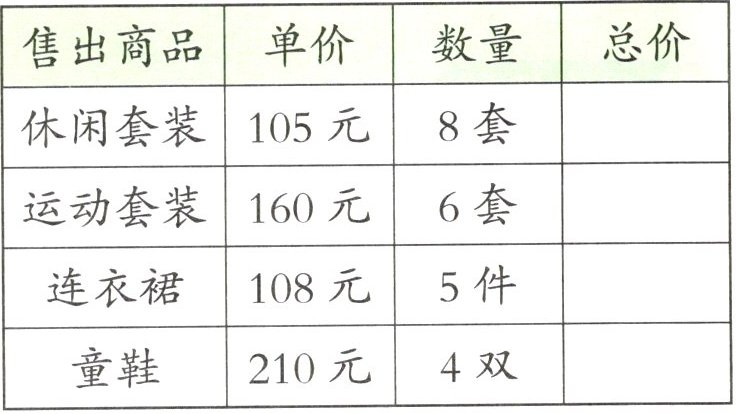 售出商品 单价 数量 总价
休闲套装 105元 8套
运动套装 160元 6套
连衣裙 108元 5件
童鞋 210元 4双